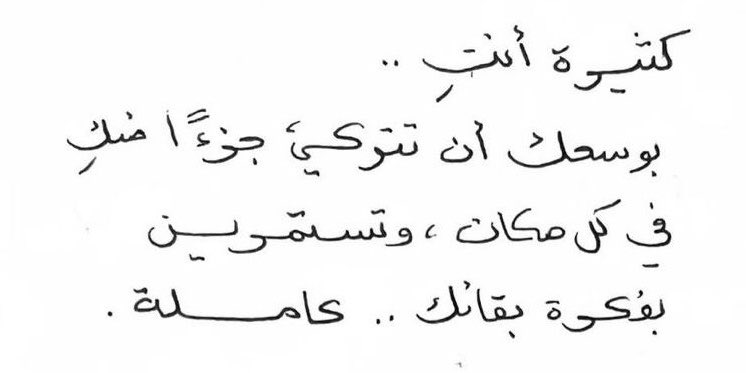 كثيرة أنتِ ..
بوسعك أن تتركيَ جزءًا منكِ
في كل مكان ، وتستمرين
بفكرة بقائك .. كاملة .